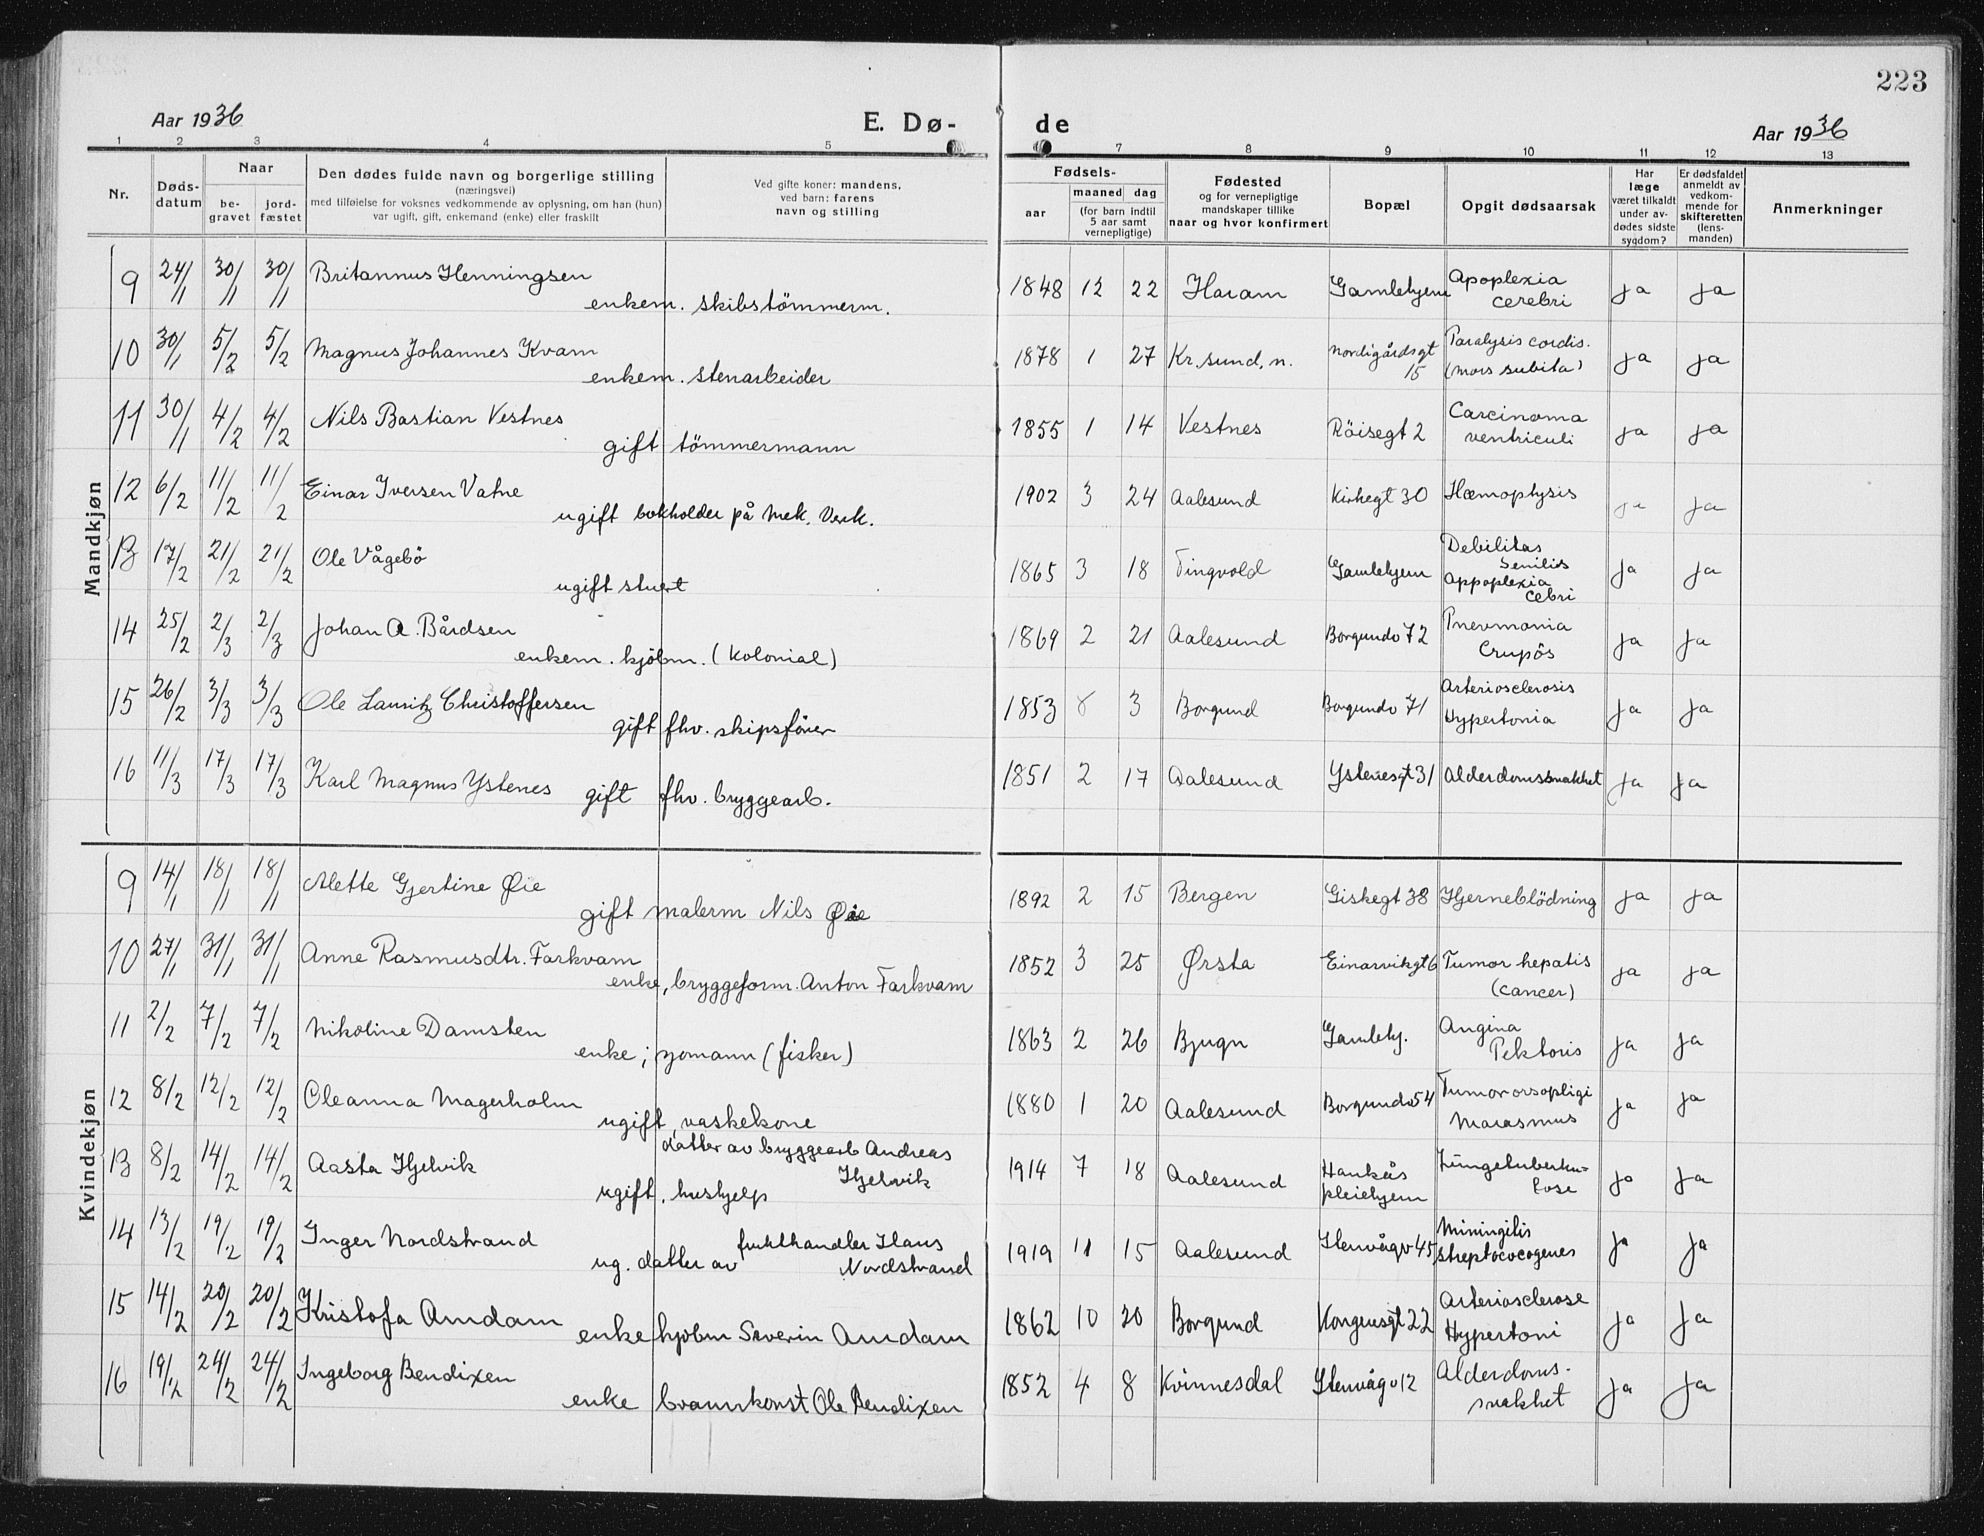 223
Aar 1936
E. Dø-
de
Aar 1936
1 2 3 4 5 7 8 9 10 11 12 13
Nr.
Døds-
datum
Naar
be-
gravet
jord-
fæstet
Den dødes fulde navn og borgerlige stilling
(næringsvei)
med tilføielse for voksnes vedkommende av oplysning, om han (hun)
var ugift, gift, enkemand (enke) eller fraskilt
Ved gifte koner: mandens,
ved barn: farens
navn og stilling
Fødsels-
aar
maaned dag
(for barn indtil
5 aar samt
vernepligtige)
Fødested
og for vernepligtige
mandskaper tillike
naar og hvor konfirmert
Bopæl
Opgit dødsaarsak
Har
læge
været tilkaldt
under av-
dødes sidste
sygdom?
Er dødsfaldet
anmeldt av
vedkom-
mende for
skifteretten
(lens-
manden)
Anmerkninger
Mandkjøn
9 24/1 30/1 30/1 Britannus Henningsen
enkem. skibstömmerm.
1848 12 22 Haram Gamlehjem Apoplexia
cerebri ja ja
10 30/1 5/2 5/2 Magnus Johannes Kvam
enkem. stenarbeider
1878 1 27 Kr.sund, n. Nordigårdsgt
15 Paralysis cordis.
(mors subita) ja ja
11 30/1 4/2 4/2 Nils Bastian Vestnes
gift tömmermann
1855 1 14 Vestnes Röisegt 2 Carcinoma
ventriculi ja ja
12 6/2 11/2 11/2 Einar Iversen Vatne
ugift bokholder på Mek. Verk.
1902 3 24 Aalesund Kirkegt 30 Hæmoptysis ja ja
13 17/2 21/2 21/2 Ole Vågebö
ugift stuert
1865 3 18 Tingvold Gamlehjem Debilitas
Senilis
Appoplexia
cebri ja ja
14 25/2 2/3 2/3 Johan A. Bårdsen
enkem. kjöbm. (Kolonial)
1869 2 21 Aalesund Borgundv 72 Pnevmonia
Crupös ja ja
15 26/2 3/3 3/3 Ole Lauritz Christoffersen
gift fhv. skipsförer
1853 8 3 Borgund Borgundv 71 Arteriosclerosis
Hypertonia ja ja
16 11/3 17/3 17/3 Karl Magnus Ystenes
gift fhv. bryggearb.
1851 2 17 Aalesund Ystenesgt 31 Alderdomssvakhet ja ja
Kvindekjøn
9 14/1 18/1 18/1 Alette Gjertine Øie
gift malerm Nils Øie
1892 2 15 Bergen Giskegt 38 Hjerneblödning ja ja
10 27/1 31/1 31/1 Anne Rasmusdtr. Farkvam
enke, bryggeform. Anton Farkvam
1852 3 25 Ørsta Einarvikgt 6 Tumor hepatis
(cancer) ja ja
11 2/2 7/2 7/2 Nikoline Damsten
enke; (fisker)
1863 2 26 Bjugn Gamlehj. Angina
Pektoris ja ja
12 8/2 12/2 12/2 Oleanna Magerholm
ugift, vaskekone
1880 1 20 Aalesund Borgundv 54 Tumor
Marasmus ja ja
13 8/2 14/2 14/2 Aasta Hjelvik
datter av bryggearb Andreas
Hjelvik
ugift, hushjelp
1914 7 18 Aalesund Haukås
pleiehjem Lungetuberku-
lose ja ja
14 13/2 19/2 19/2 Inger Nordstrand
ug. datter av frukthandler Hans
Nordstrand
1919 11 15 Aalesund Stenvågv 45 Miningitis
streptococogenes ja ja
15 14/2 20/2 20/2 Kristofa Amdam
enke kjöbm Severin Amdam
1862 10 20 Borgund Kongensgt 22 Arteriosclerose
Hypertoni ja ja
16 19/2 24/2 24/2 Ingeborg Bendixen
enke brannkonst Ole Bendixen
1852 4 8 Kvinnesdal Stenvågv 12 Alderdoms-
svakhet ja ja